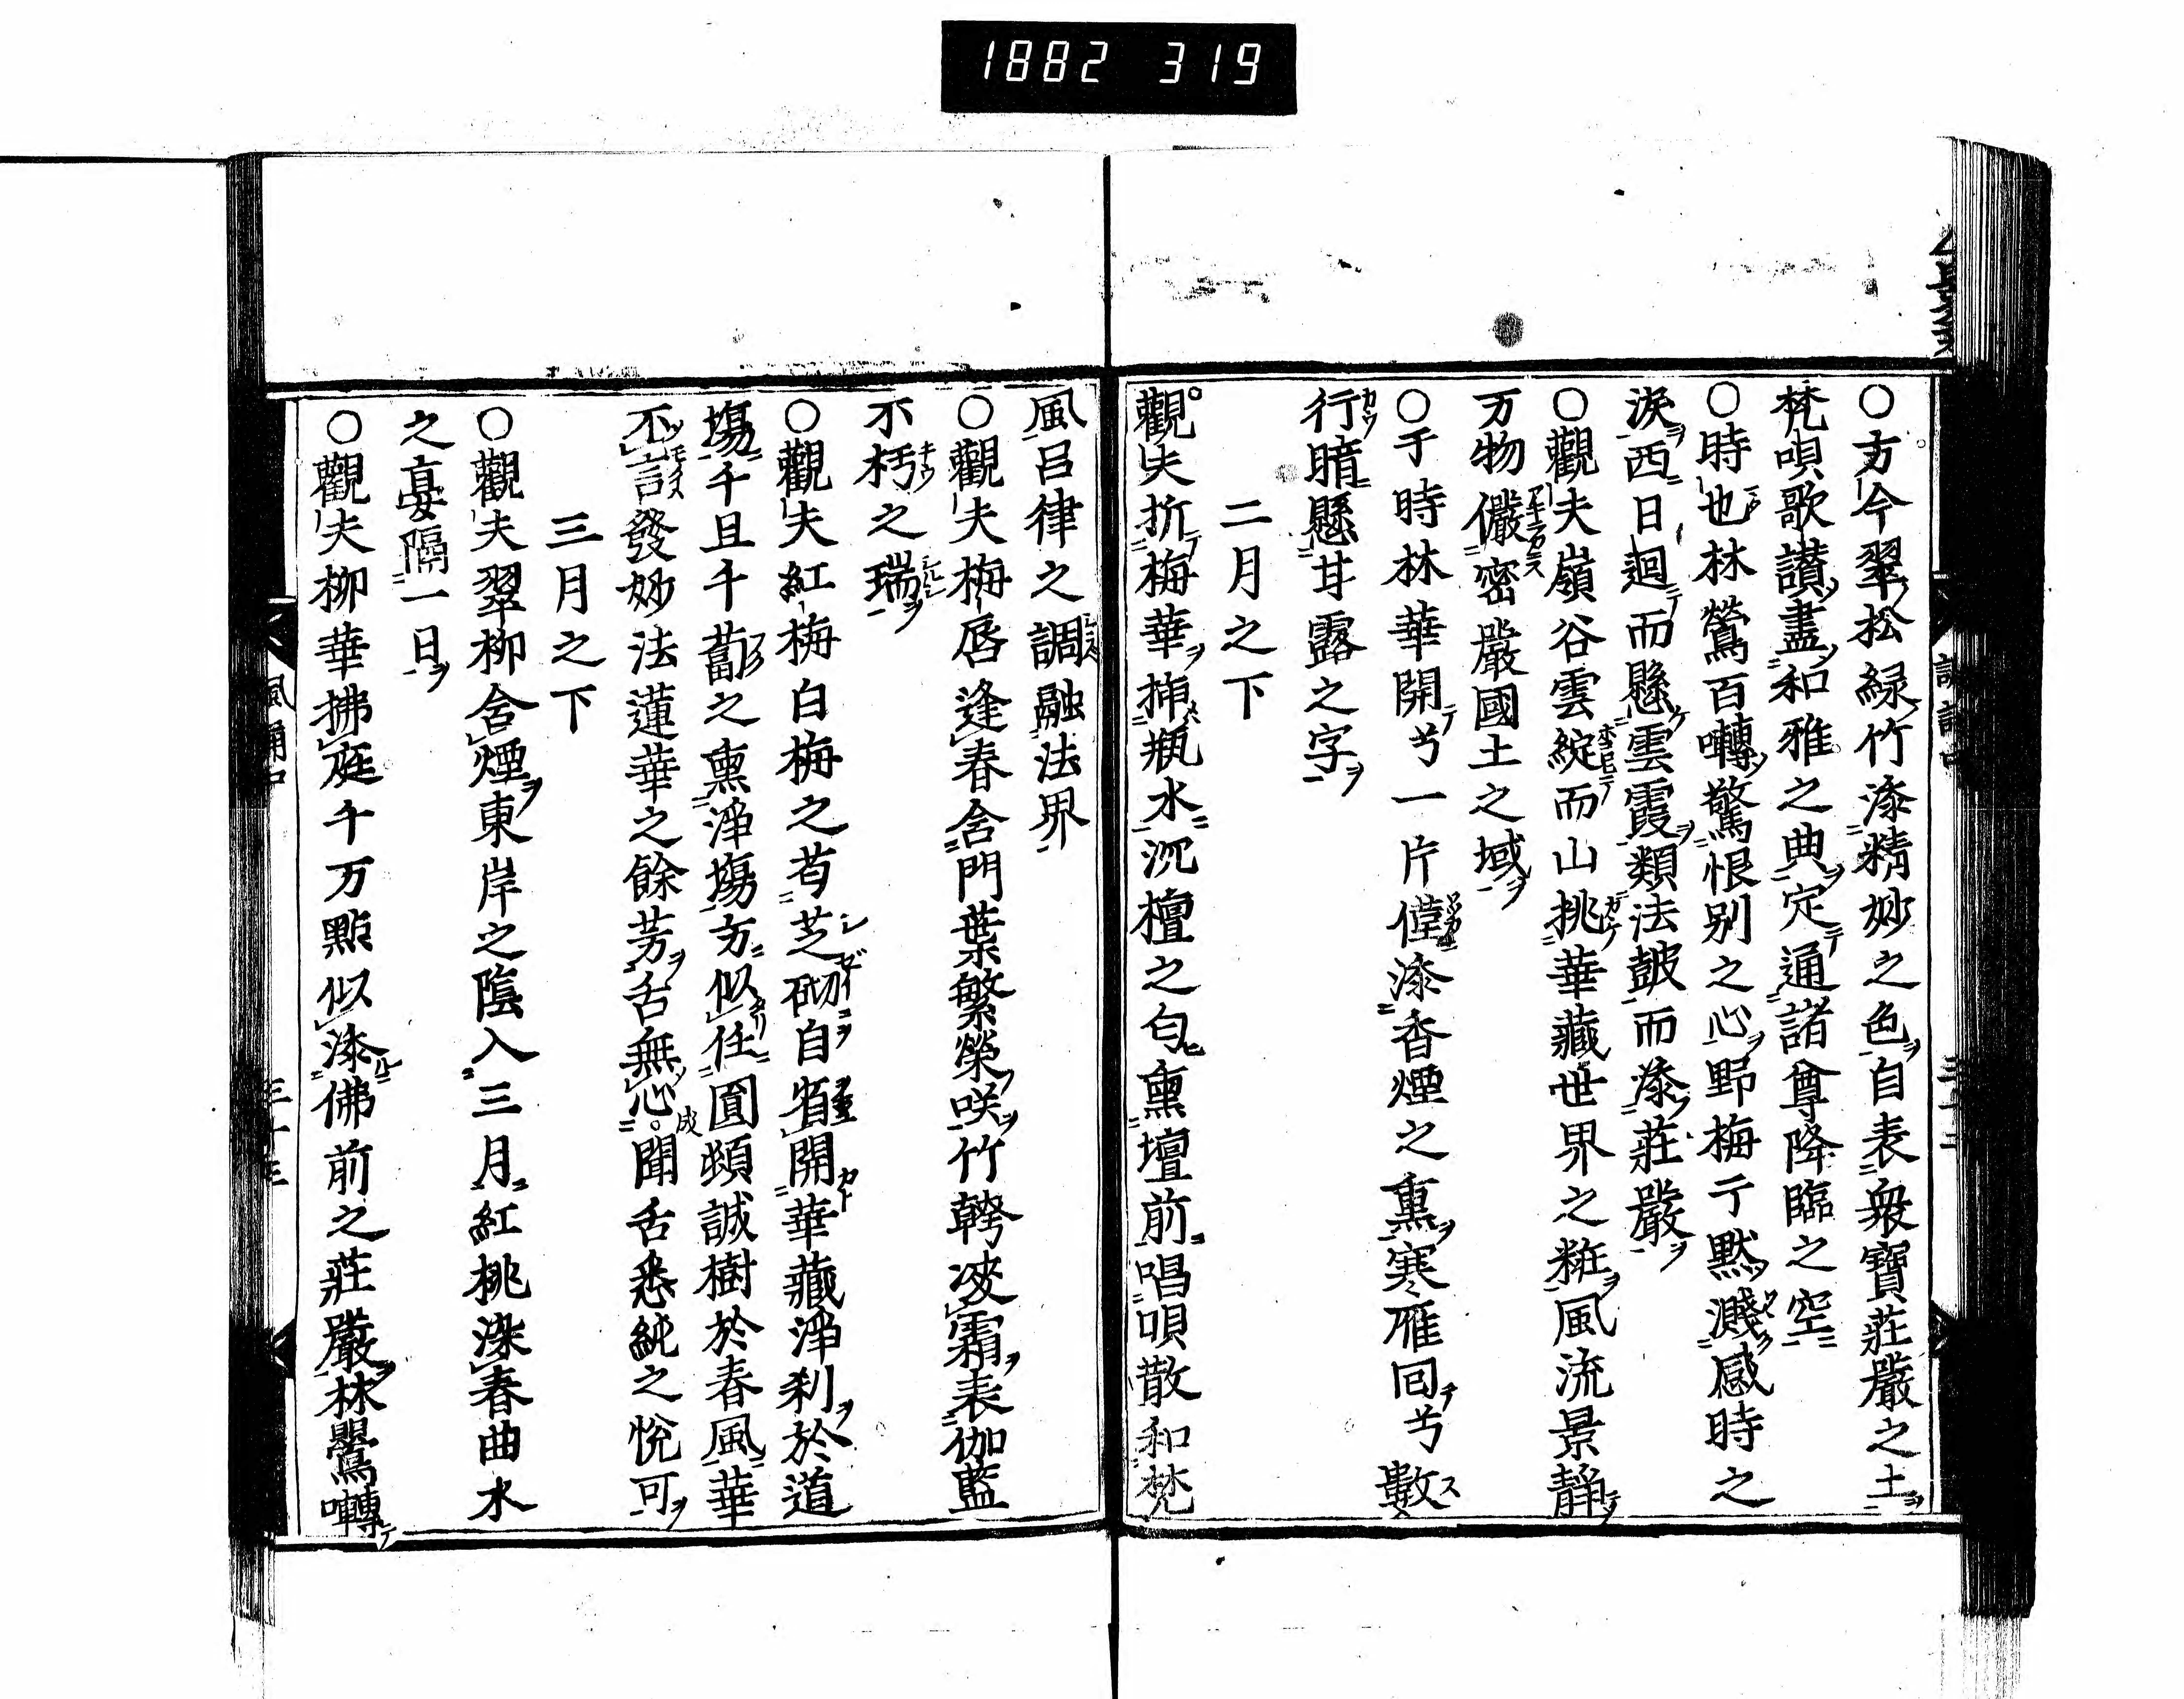 1882 319
○方今翠松緑竹添精妙之色自表衆寶莊嚴之土
梵唄歌讃盡和雅之典定通諸尊降臨之空
○時也林鶯百囀驚恨別之心野梅亍黙濺感時之
淚西日迴而懸雲霞類法皷而添莊嚴
○觀夫嶺谷雲綻而山挑華藏世界之粧風流景静
万物儼密嚴國土之域
○于時林華開兮一片僅添香煙之熏寒雁回兮數
行暗懸甘露之字
二月之下
觀夫折梅華挿瓶水沉檀之匂熏壇前唱唄散和梵
風呂律之調融法界
○觀夫梅唇逢春含門葉繁榮咲竹  凌霜表伽藍
不朽之瑞
○觀夫紅梅白梅之苟芝砌自省開華藏淨刹於道
塲千且千蔔之熏淨塲方似任圓頓誠樹於春風華
不言發妙法蓮華之餘芳舌無心聞舌悉純之悅可
三月之下
○觀夫翠柳含煙東岸之陰入三月紅桃染春曲水
之宴隔一日
○觀夫柳華拂庭千万點似添佛前之莊嚴林鸎囀